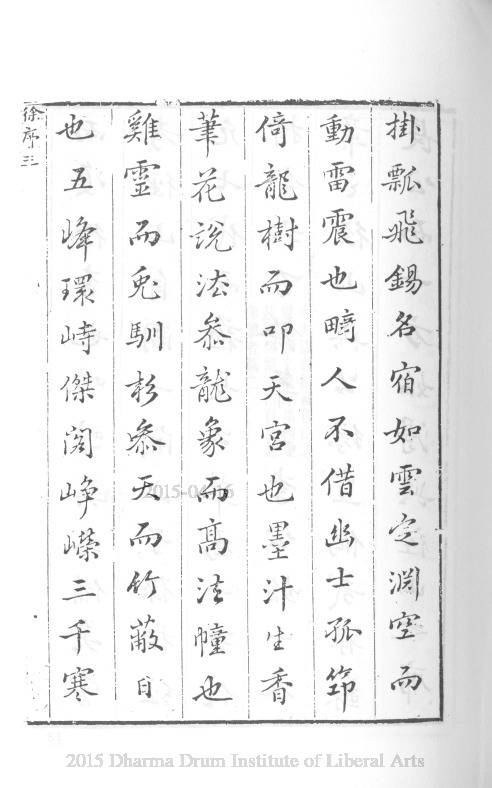 掛瓢飛錫名宿如雲定淵空而
動雷震也疇人不借幽士孤筇
倚龍樹而叩天宮也墨汁生香
筆花說法叅龍象而髙法幢也
雞靈而兎馴杉叅天而竹蔽日
也五峰環峙傑閣崢嶸三千寒
徐序 三
2015-04-16
2015 Dharma Drum Institute of Liberal Arts